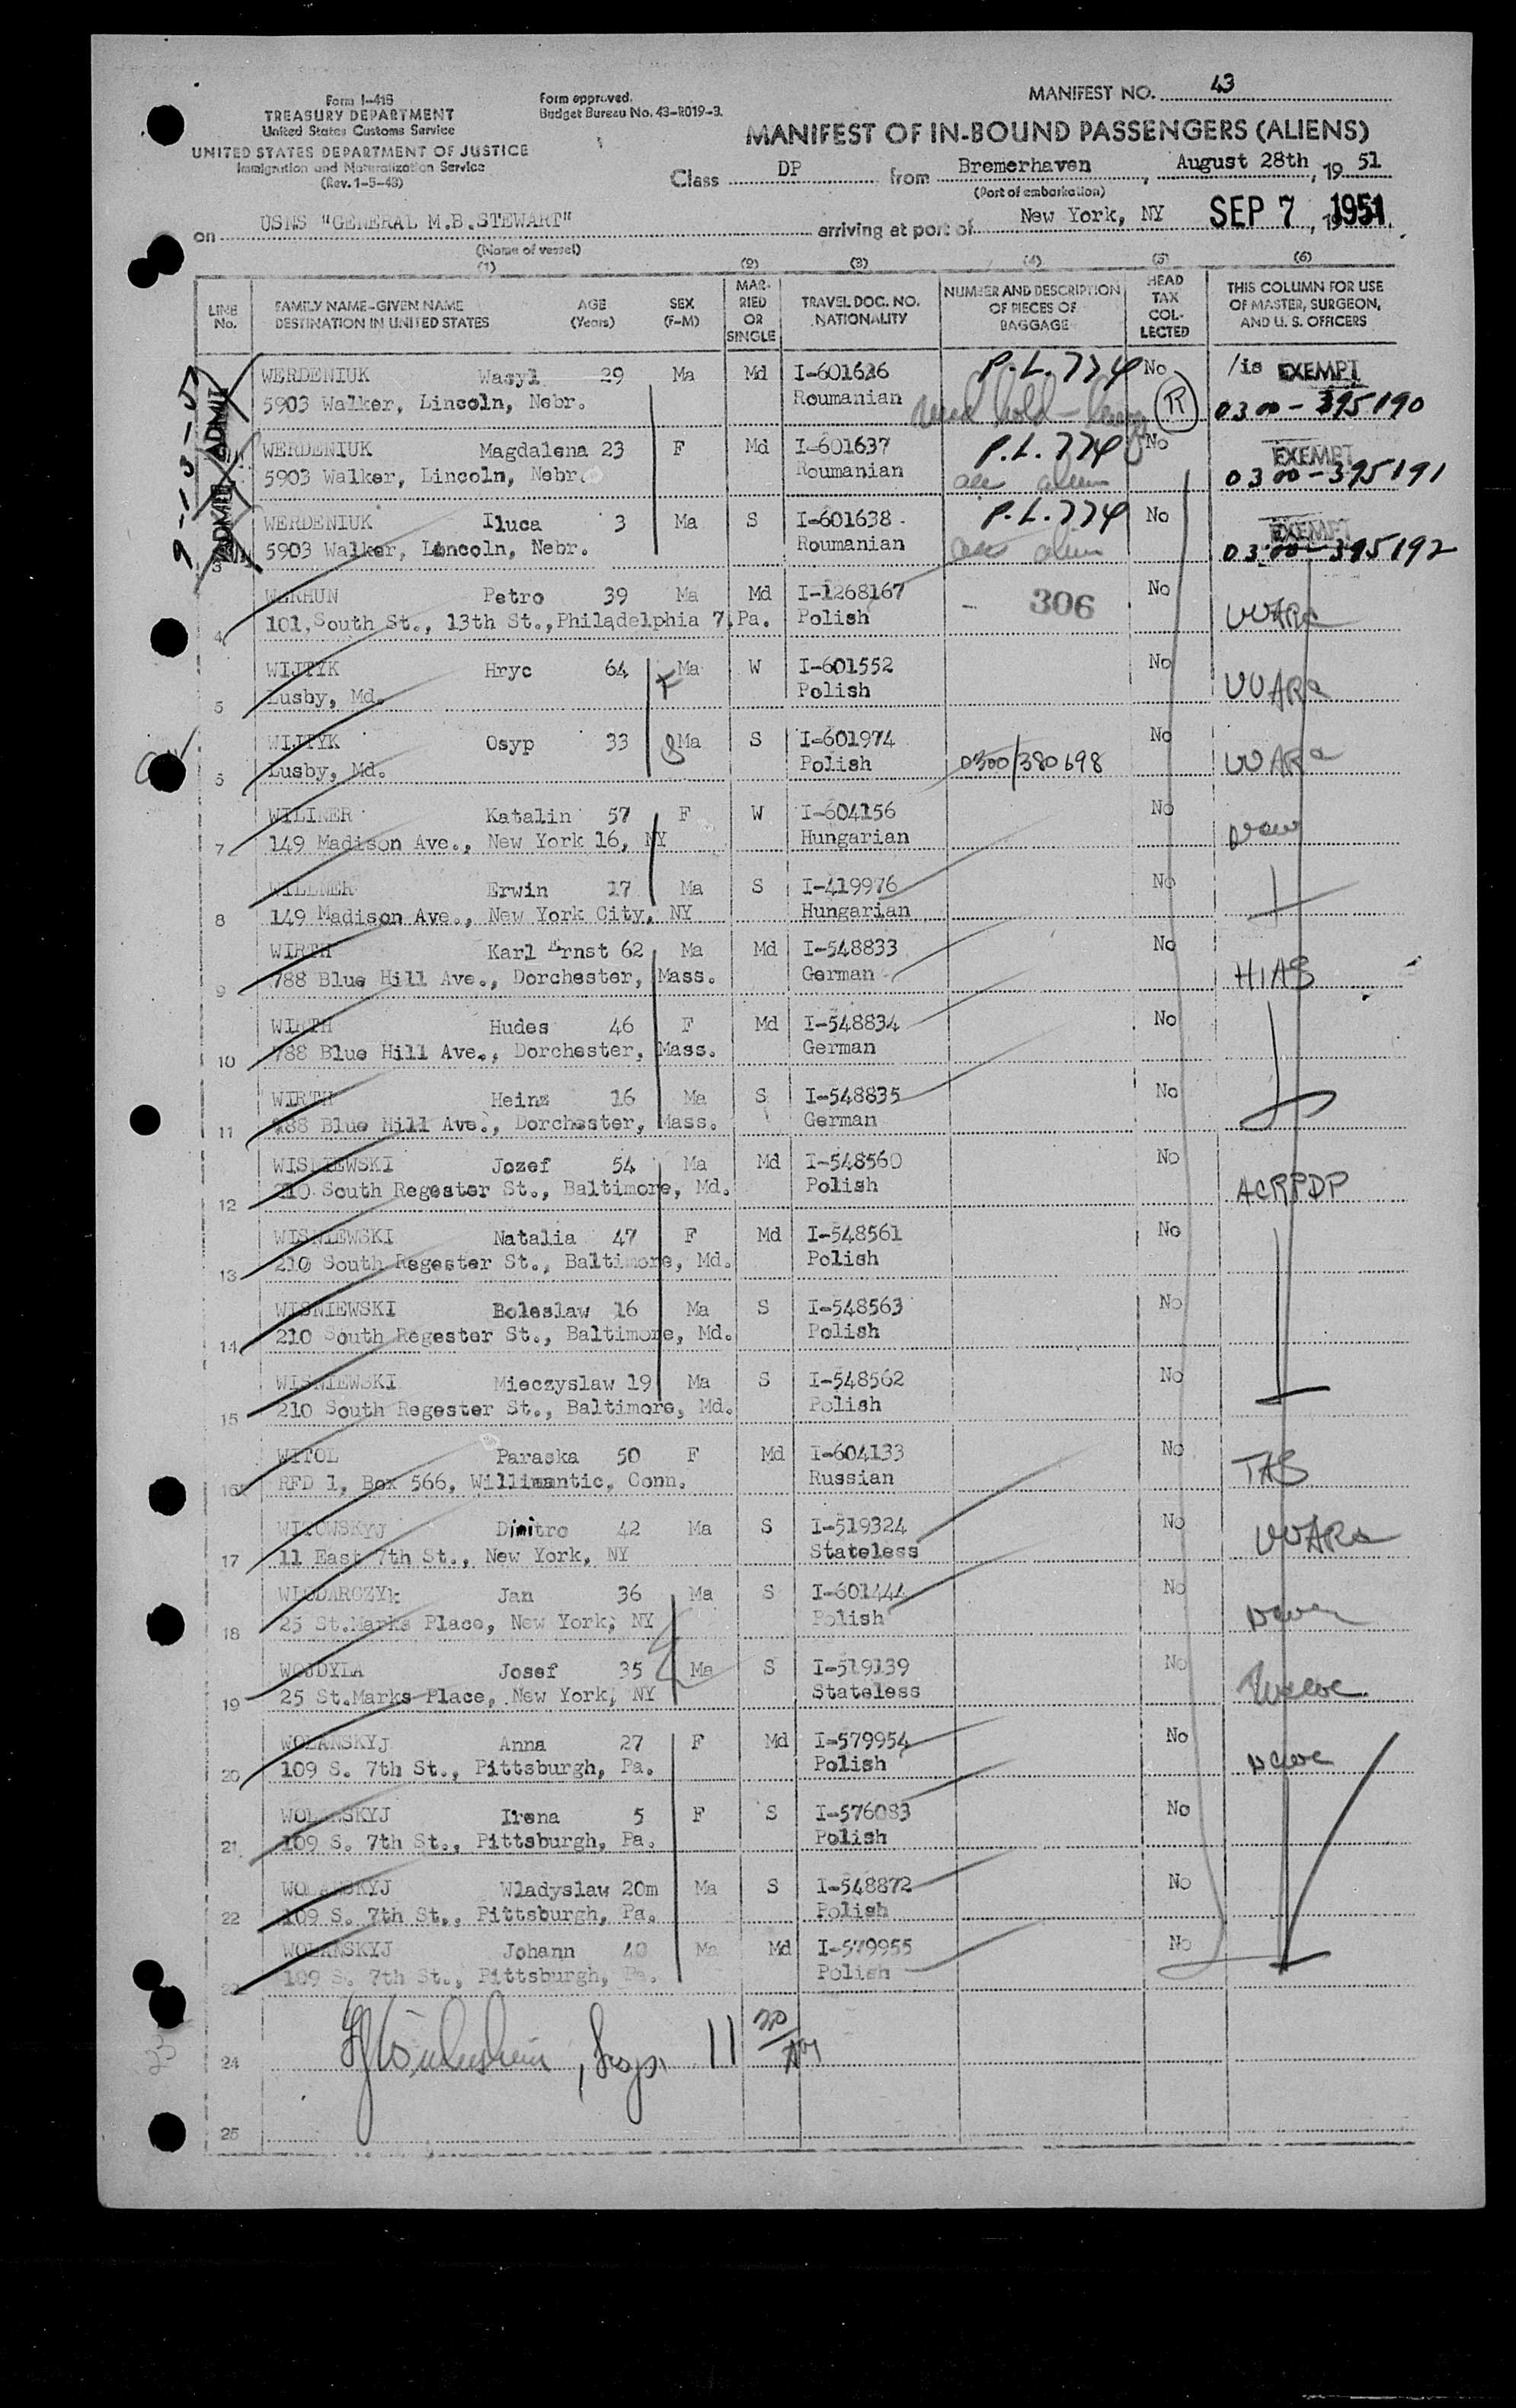 Form I-415
TREASURY DEPARTMENT
United States Customs Service
UNITED STATES DEPARTMENT OF JUSTICE
Immigration and Naturalization Service
(Rev. 1-5-48)
Form approved.
Budget Bureau No. 43-R019-3.
MANIFEST NO. 43
MANIFEST OF IN-BOUND PASSENGERS (ALIENS)
Class DP from Bremerhaven, August 28th, 19 51
(Port of embarkation)
on USNS "GENERAL M.B.STEWART" arriving at port of New York, NY SEP 7, 1951
(Name of vessel)
(1) (2) (3) (4) (5) (6)
LINE No. FAMILY NAME-GIVEN NAME DESTINATION IN UNITED STATES AGE (Years) SEX (F-M) MARRIED OR SINGLE TRAVEL DOC. NO. NATIONALITY NUMBER AND DESCRIPTION OF PIECES OF BAGGAGE HEAD TAX COLLECTED THIS COLUMN FOR USE OF MASTER, SURGEON, AND U. S. OFFICERS
WERDENIUK Wasyl 29 Ma Md I-601636 P.L.774 No /is EXEMPT
5903 Walker, Lincoln, Nebr. Roumanian Med hold - R 0300-395190
ADMIT
WERDENIUK Magdalena 23 F Md I-601637 P.L.774 No EXEMPT
5903 Walker, Lincoln, Nebr. Roumanian acc alien 0300-395191
ADMIT
WERDENIUK Iluca 3 Ma S I-601638 P.L.774 No EXEMPT
3 5903 Walker, Lincoln, Nebr. Roumanian acc alien 0300-395192
WERHUN Petro 39 Ma Md I-1268167 306 No
4 101,South St., 13th St.,Philadelphia 7,Pa. Polish UUARC
WIJTYK Hryc 64 Ma W I-601552 No
5 Lusby, Md. Polish UUARC
WIJTYK Osyp 33 Ma S I-601974 No
6 Lusby, Md. Polish 0300/380698 UUARC
WILINER Katalin 57 F W I-604156 No
7 149 Madison Ave., New York 16, NY Hungarian
WILLNER Erwin 17 Ma S I-419976 No
8 149 Madison Ave., New York City, NY Hungarian
WIRTH Karl Ernst 62 Ma Md I-548833 No
9 788 Blue Hill Ave., Dorchester, Mass. German HIAS
WIRTH Hudes 46 F Md I-548834 No
10 788 Blue Hill Ave., Dorchester, Mass. German
WIRTH Heinz 16 Ma S I-548835 No
11 788 Blue Hill Ave., Dorchester, Mass. German
WISNIEWSKI Jozef 54 Ma Md I-548560 No
12 210 South Regester St., Baltimore, Md. Polish ACRPDP
WISNIEWSKI Natalia 47 F Md I-548561 No
13 210 South Regester St., Baltimore, Md. Polish
WISNIEWSKI Boleslaw 16 Ma S I-548563 No
14 210 South Regester St., Baltimore, Md. Polish
WISNIEWSKI Mieczyslaw 19 Ma S I-548562 No
15 210 South Regester St., Baltimore, Md. Polish
WITOL Paraska 50 F Md I-604133 No
16 RFD 1, Box 566, Willimantic, Conn. Russian TAS
WITOWSKYJ Dmitro 42 Ma S I-519324 No
17 11 East 7th St., New York, NY Stateless UUARC
WLODARCZYk Jan 36 Ma S I-601444 No
18 25 St.Marks Place, New York, NY Polish
WOJDYLA Josef 35 Ma S I-519139 No
19 25 St.Marks Place, New York, NY Stateless
WOLANSKYJ Anna 27 F Md I-579954 No
20 109 S. 7th St., Pittsburgh, Pa. Polish
WOLANSKYJ Irena 5 F S I-576083 No
21 109 S. 7th St., Pittsburgh, Pa. Polish
WOLANSKYJ Wladyslaw 20m Ma S I-548872 No
22 109 S. 7th St., Pittsburgh, Pa. Polish
WOLANSKYJ Johann 40 Ma Md I-579955 No
23 109 S. 7th St., Pittsburgh, Pa. Polish
24 , Insp. 11
25